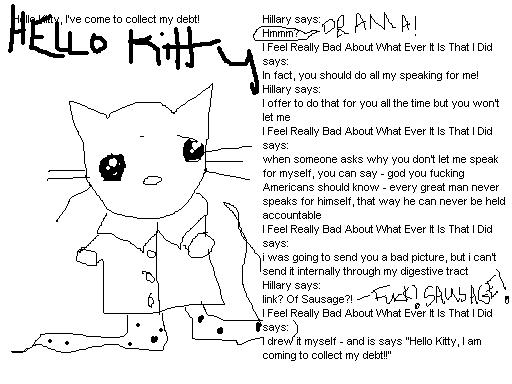 Hello Kitty, I've come to collect my debt!
HELLO Kitty
Hillary says:
Hmmm?
DRAMA!
I Feel Really Bad About What Ever It Is That I Did
says:
In fact, you should do all my speaking for me!
Hillary says:
I offer to do that for you all the time but you won't
let me
I Feel Really Bad About What Ever It Is That I Did
says:
when someone asks why you don't let me speak
for myself, you can say - god you fucking
Americans should know - every great man never
speaks for himself, that way he can never be held
accountable
I Feel Really Bad About What Ever It Is That I Did
says:
i was going to send you a bad picture, but i can't
send it internally through my digestive tract
Hillary says:
link? Of Sausage?!
SAUSAGE!
I Feel Really Bad About What Ever It Is That I Did
says:
I drew it myself - and is says "Hello Kitty, I am
coming to collect my debt!!"